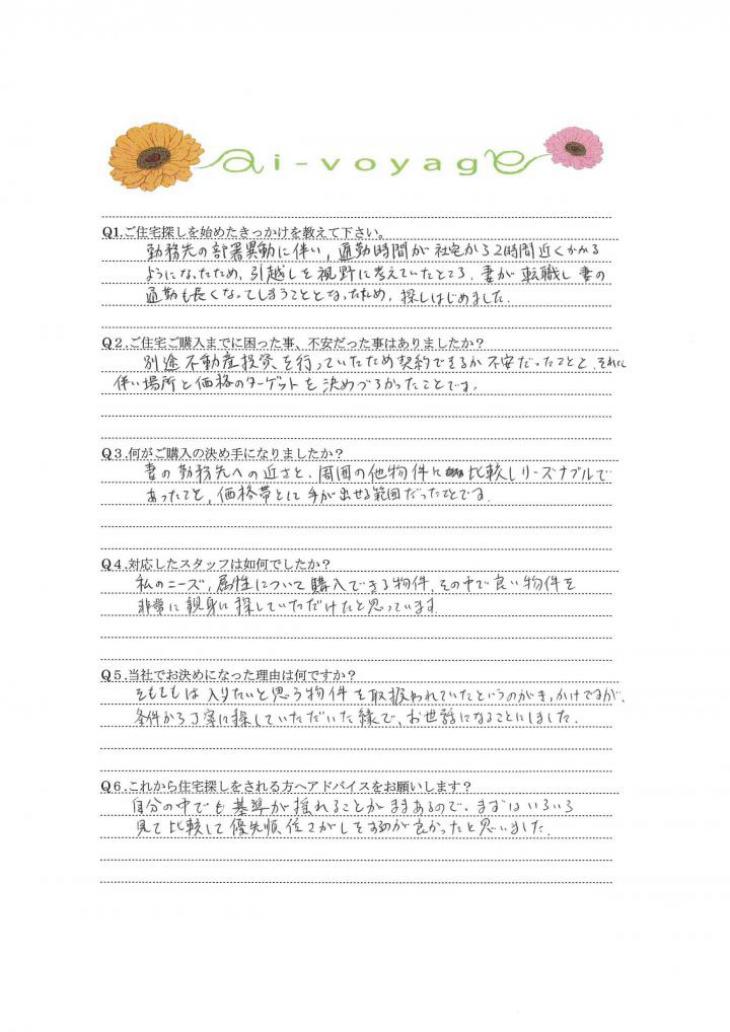 ai-voyage
Q1.ご住宅探しを始めたきっかけを教えて下さい。
勤務先の部署異動に伴い、通勤時間が社宅から2時間近くかかる
ようになったため、引越しを視野に考えていたところ、妻が転職し妻の
通勤も長くなってしまうこととなったため、探しはじめました。
Q2.ご住宅ご購入までに困った事、不安だった事はありましたか？
別途不動産投資を行っていたため契約できるか不安だったことと、それに
伴い場所と価格のターゲットを決めづらかったことです。
Q3.何がご購入の決め手になりましたか？
妻の勤務先への近さと、周囲の他物件に比較しリーズナブルで
あったこと、価格帯として手が出せる範囲だったことです。
Q4.対応したスタッフは如何でしたか？
私のニーズ、属性について購入できる物件、その中で良い物件を
非常に親身に探していただけたと思っています。
Q5.当社でお決めになった理由は何ですか？
そもそもは入りたいと思う物件を取扱われていたというのがきっかけですが、
条件から丁寧に探していただいた縁で、お世話になることにしました。
Q6.これから住宅探しをされる方へアドバイスをお願いします？
自分の中でも基準が揺れることがままあるので、まずはいろいろ
見て比較して優先順位さがしをするのが良かったと思いました。